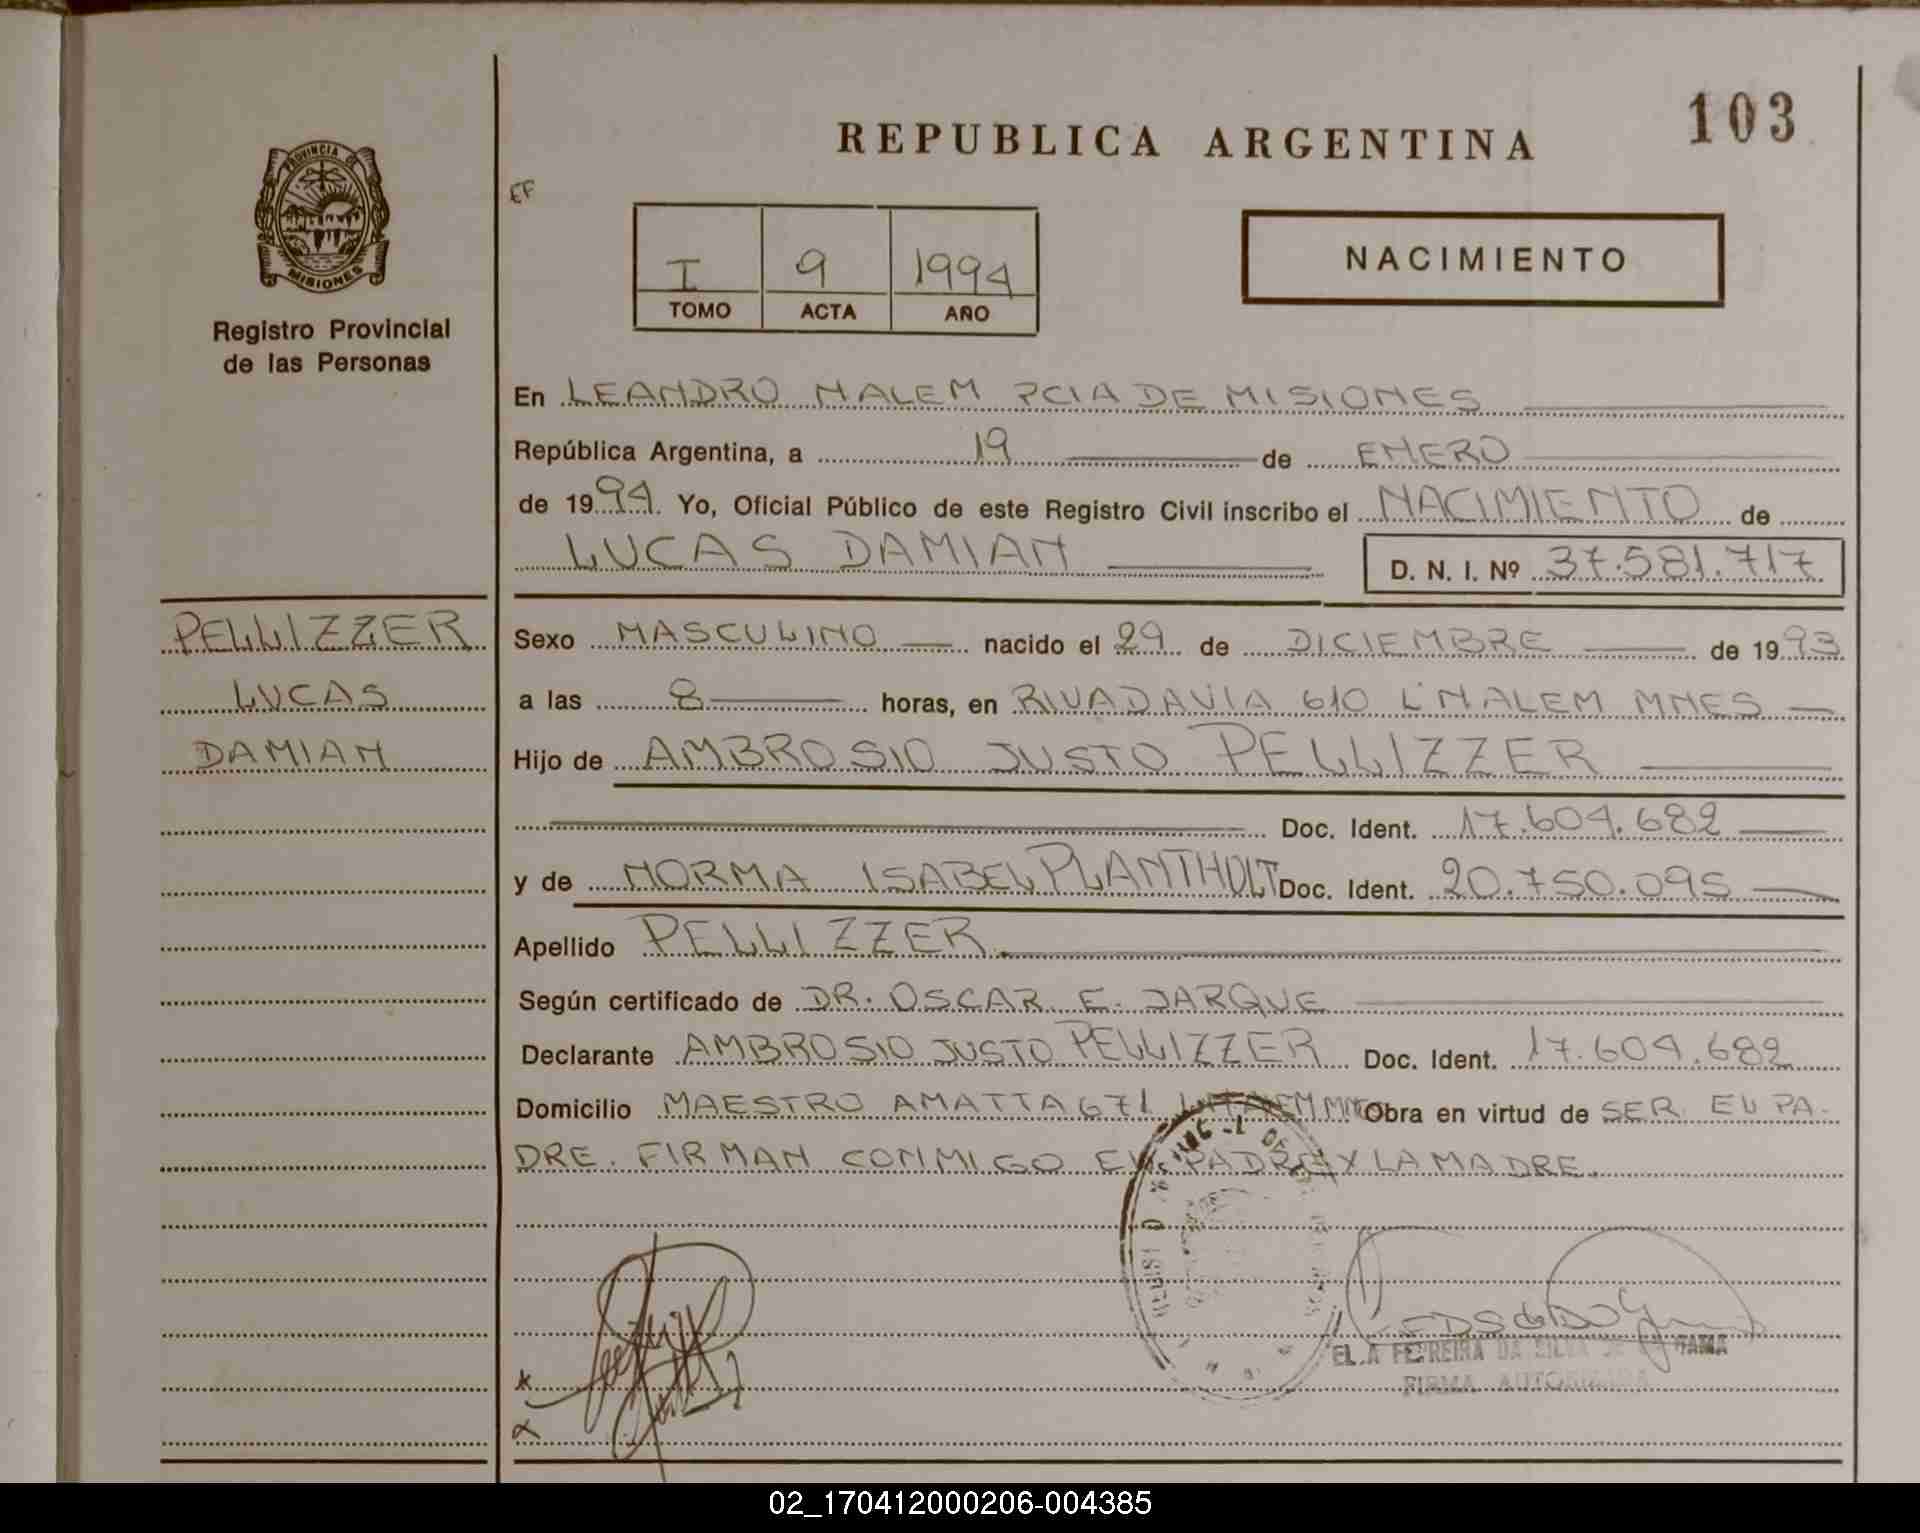 103
REPUBLICA ARGENTINA
EF
PROVINCIA DE
MISIONES
Registro Provincial
de las Personas
I 9 1994
TOMO ACTA AÑO
NACIMIENTO
En LEANDRO N ALEM PCIA DE MISIONES
República Argentina, a 19 de ENERO
de 1994. Yo, Oficial Público de este Registro Civil inscribo el NACIMIENTO de
LUCAS DAMIAN D. N. I. Nº 37.581.717
PELLIZZER
LUCAS
DAMIAN
Sexo MASCULINO nacido el 29 de DICIEMBRE de 1993
a las 8 horas, en RIVADAVIA 610 L N ALEM MNES
Hijo de AMBROSIO JUSTO PELLIZZER
Doc. Ident. 17.604.682
y de NORMA ISABEL PLANTHOLT Doc. Ident. 20.750.095
Apellido PELLIZZER
Según certificado de DR. OSCAR E. JARQUE
Declarante AMBROSIO JUSTO PELLIZZER Doc. Ident. 17.604.682
Domicilio MAESTRO AMATTA 671 L N ALEM MNES Obra en virtud de SER EL PA-
DRE. FIRMAN CONMIGO EL PADRE Y LA MADRE.
FERREIRA DA SILVA DE
FIRMA AUTORIZADA
02_170412000206-004385